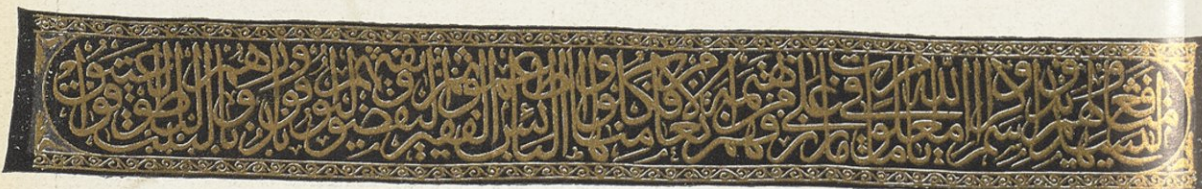 ليشهدوا منافع لهم ويذكروا اسم الله في أيام معلومات على ما رزقهم من بهيمة الأنعام فكلوا منها وأطعموا البائس الفقير ثم ليقضوا تفثهم وليوفوا نذورهم وليطوفوا بالبيت العتيق